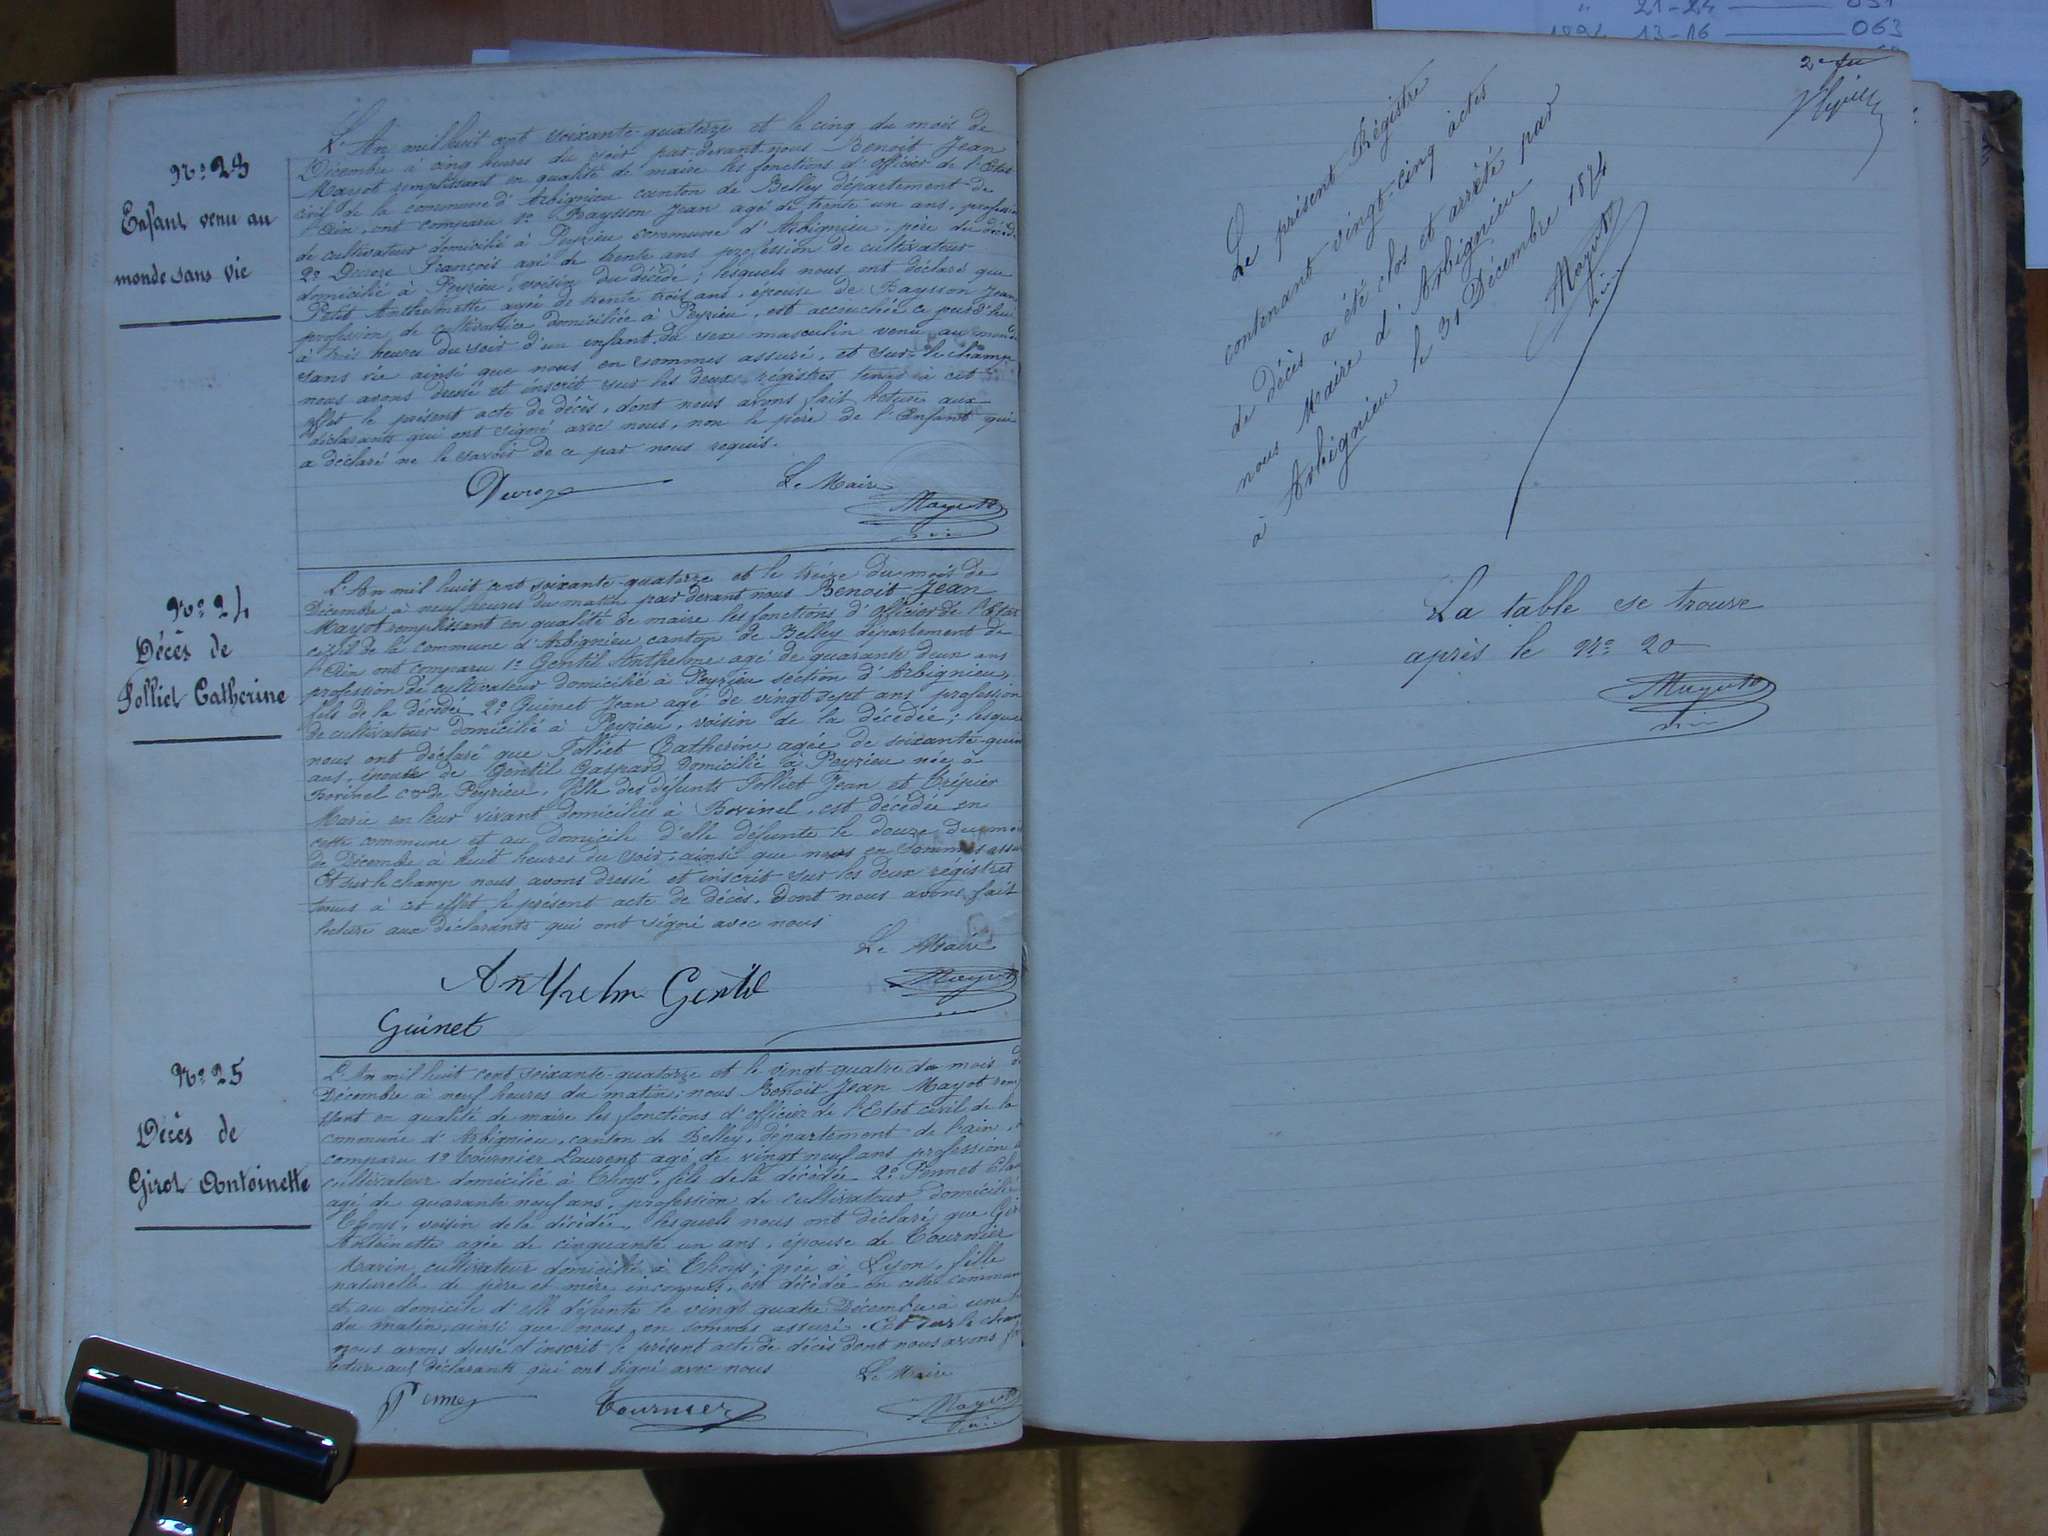 " 21-24 ——— 051
1894 13-16 ——— 063
No: 23
Enfant venu au
monde sans vie
L'An mil huit cent soixante-quatorze et le cinq du mois de
Décembre à cinq heures du soir par devant nous Benoit Jean
Mayot remplissant en qualité de maire les fonctions d'officier de l'Etat
civil de la commune d'Arbignieu canton de Belley département de
l'Ain, ont comparu 1o Baysson Jean agé de trente un ans, profession
de cultivateur domicilié à Peyzieu commune d'Arbignieu, père du décédé
2o Devoze François agé de trente ans profession de cultivateur
domicilié à Peyzieu, voisin du décédé; lesquels nous ont déclaré que
Petit Anthelmette agée de trente trois ans, épouse de Baysson Jean
profession de cultivatrice domiciliée à Peyzieu, est accouchée ce jourd'hui
à trois heures du soir d'un enfant du sexe masculin venu au monde
sans vie ainsi que nous en sommes assuré, et sur le champ
nous avons dressé et inscrit sur les deux régistres tenus à cet
effet le présent acte de décès, dont nous avons fait lecture aux
déclarants qui ont signé avec nous, non le père de l'Enfant qui
a déclaré ne le savoir de ce par nous requis.
Devoze Le Maire
Mayot
No: 24
Décès de
Folliet Catherine
L'An mil huit cent soixante-quatorze et le treize du mois de
Décembre à neuf heures du matin par devant nous Benoit Jean
Mayot remplissant en qualité de maire les fonctions d'Officier de l'Etat
civil de la commune d'Arbignieu canton de Belley département de
l'Ain ont comparu 1o Gentil Anthelme agé de quarante deux ans
profession de cultivateur domicilié à Peyzieu section d'Arbignieu,
fils de la décédée 2o Guinet Jean agé de vingt sept ans profession
de cultivateur domicilié à Peyzieu, voisin de la décédée; lesquels
nous ont déclaré que Folliet Catherine agée de soixante-quin
ans, épouse de Gentil Gaspard domicilié à Peyzieu née à
Bovinel cne de Peyrieu, fille des défunts Folliet Jean et Crépier
Marie en leur vivant domiciliés à Bovinel, est décédée en
cette commune et au domicile d'elle défunte le douze du mois
de Décembre à huit heures du soir, ainsi que nous en sommes assuré
Et sur le champ nous avons dressé et inscrit sur les deux régistres
tenus à cet effet le présent acte de décès. Dont nous avons fait
lecture aux déclarants qui ont signé avec nous
Le Maire
Anthelm Gentil Mayot
Guinet
No: 25
Décès de
Girot Antoinette
L'An mil huit cent soixante-quatorze et le vingt-quatre du mois de
Décembre à neuf heures du matin; nous Benoit Jean Mayot rem
ssant en qualité de maire les fonctions d'officier de l'Etat civil de la
commune d'Arbignieu, canton de Belley, département de l'ain,
comparu 1o Tournier Laurent agé de vingt neuf ans profession
cultivateur domicilié à Thoys, fils de la décédée 2o Pennet Cla
agé de quarante neuf ans, profession de cultivateur domicilié
Thoys, voisin de la décédée, lesquels nous ont déclaré que Gir
Antoinette agée de cinquante un ans, épouse de Tournier
Marin cultivateur domicilié à Thoys; née à Lyon, fille
naturelle de père et mère inconnus, est décédée en cette commun
et au domicile d'elle défunte le vingt quatre Décembre à une h
du matin, ainsi que nous en sommes assuré. Et sur le cham
nous avons dressé et inscrit le présent acte de décès dont nous avons f
lecture aux déclarants qui ont signé avec nous Le Maire
Pennet Tournier Mayot
Le présent Régistre
contenant vingt-cinq actes
de décès a été clos et arrêté par
nous Maire d'Arbignieu
à Arbignieu le 31 Décembre 1874
Mayot
La table se trouve
après le No: 20
Mayot